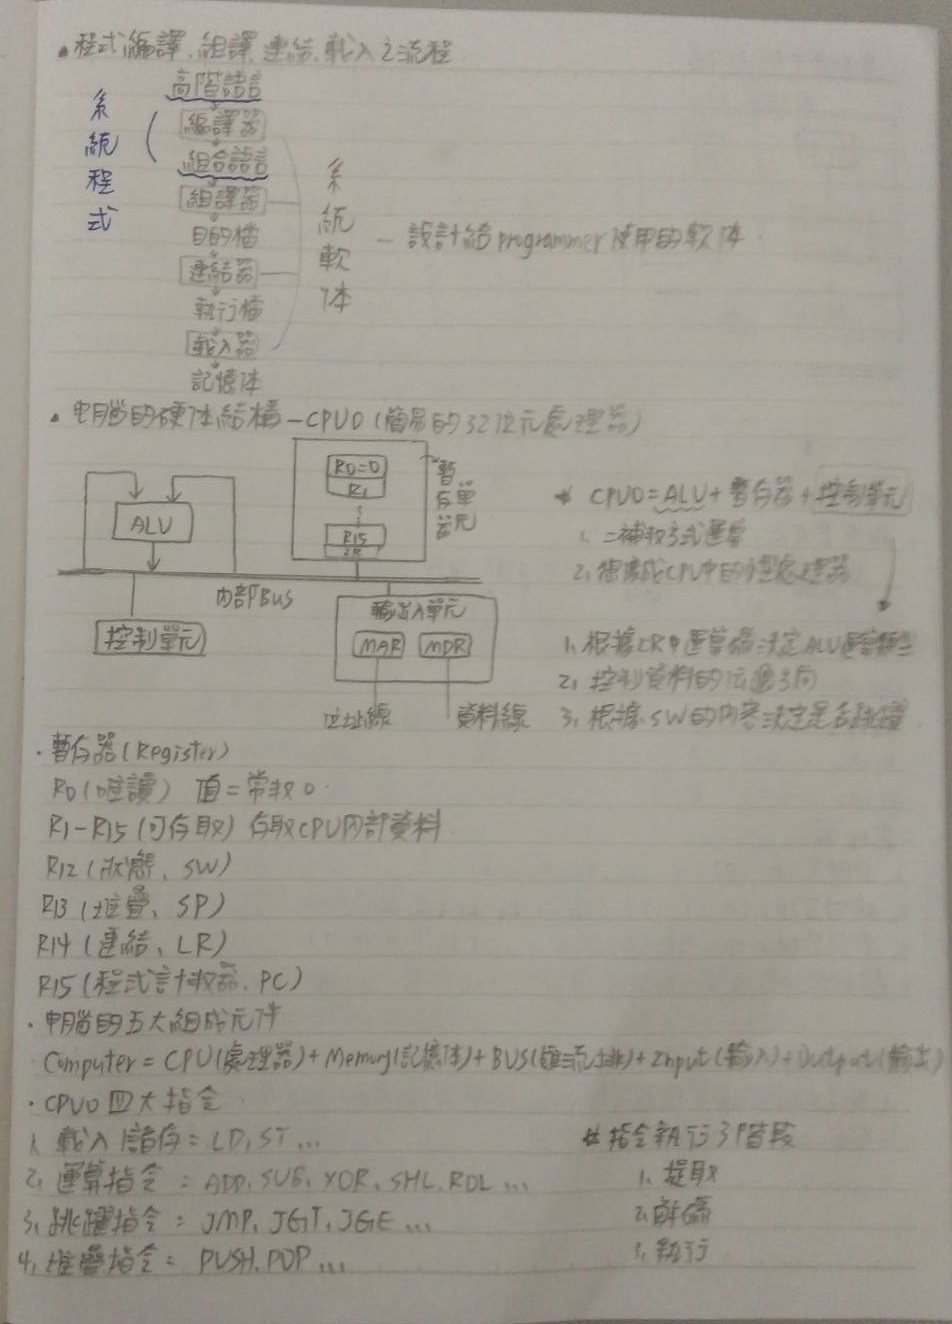 程式編譯、組譯、連結、載入之流程
系統程式
高階語言
編譯器
組合語言
組譯器
目的檔
連結器
執行檔
載入器
記憶体
系統軟体 — 設計給programmer使用的軟体
电腦的硬体結構－CPU0(簡易的32位元處理器)
ALU
R0=0
R1
R15
IR
暫存器單元
內部BUS
控制單元
輸出入單元
MAR MDR
位址線 資料線
CPU0=ALU+暫存器+控制單元
1、二補數方式運算
2、
1、根據IR中運算碼決定ALU運算類型
2、控制資料的伝遞方向
3、根據SW的內容決定是否跳躍
·暫存器(Register)
R0(唯讀) 值=常数0
R1-R15(可存取) 存取CPU內部資料
R12(狀態、SW)
R13(堆疊、SP)
R14(連結、LR)
R15(程式計数器、PC)
·电腦的五大組成元件
Computer = CPU(處理器)+Memory(記憶体)+BUS(匯流排)+Input(輸入)+Output(輸出)
·CPU0四大指令
1、載入儲存=LD,ST...
2、運算指令:ADD,SUB,XOR,SHL,ROL...
3、跳躍指令:JMP,JGT,JGE...
4、堆疊指令:PUSH,POP...
指令執行3階段
1、提取
2、解碼
3、執行